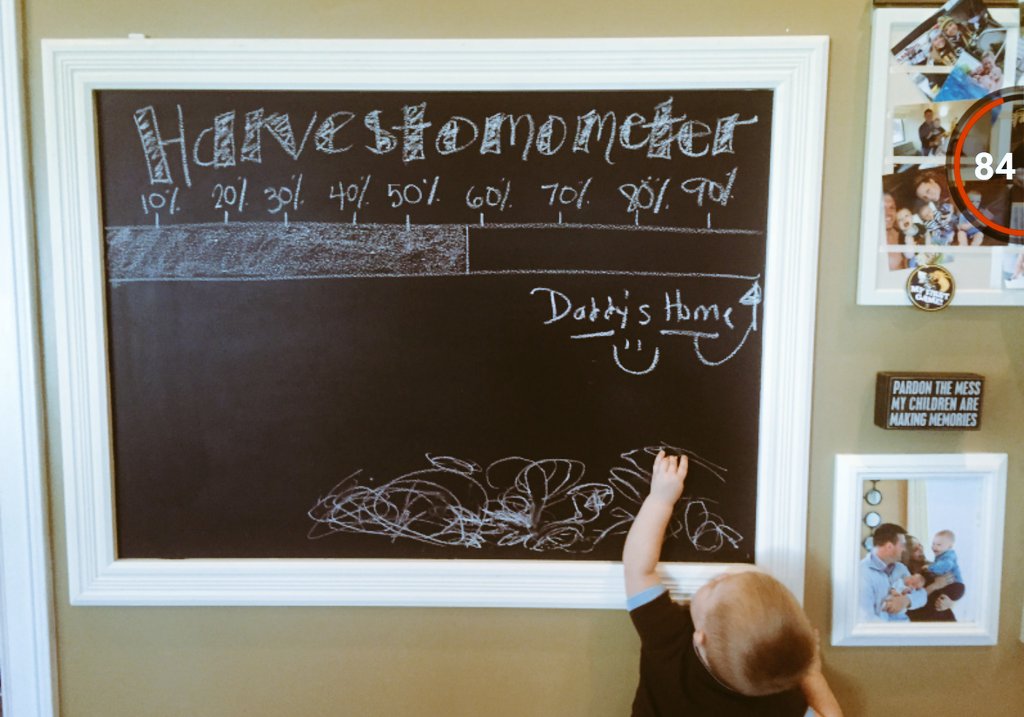 Harvestomometer
10% 20% 30% 40% 50% 60% 70% 80% 90%
Daddy's Home
84
MY FIRST
GAME
PARDON THE MESS
MY CHILDREN ARE
MAKING MEMORIES